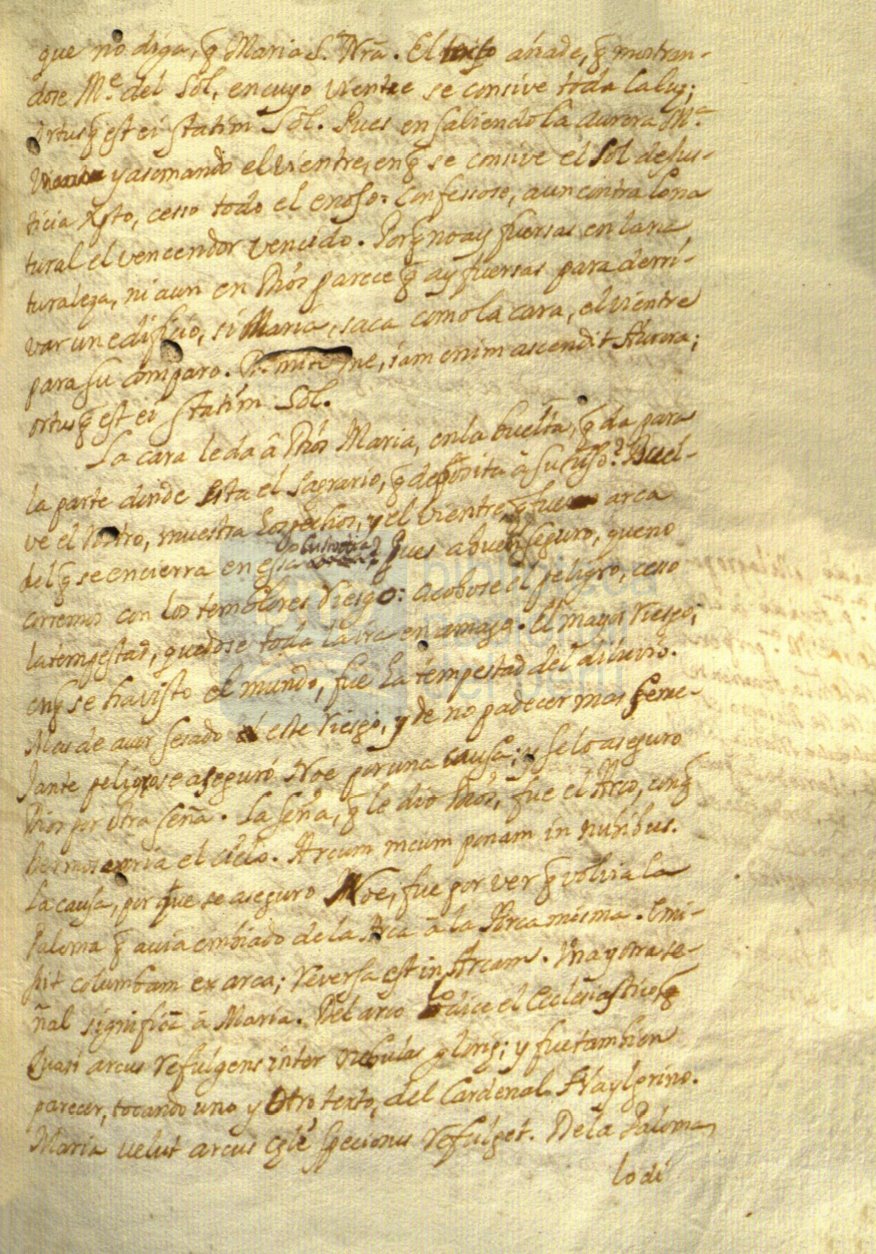 que no diga, q̃ Maria S. Nrã. El texto añade, q̃ mostran-
dose Me. del Sol, en cuyo vientre se consive toda la luz;
ortusq̃ est ei statim Sol. Pues en saliendo la Aurora Ma.
y asomando el vientre, en q̃ se consive el Sol de Jus-
ticia Xpto, cesso todo el enojo. Confessoso, aun contra lo na
tural el vencendor vencido. Porq̃ no ay fuersas en la na
turaleza, ni aun en Dios parece q̃ ay fuersas para derri-
var un edificio, si Maria, saca como la cara, el vientre
para su amparo. Dimitte me, iam enim ascendit Aurora;
ortusq̃ est ei statim Sol.
La cara le da â Dios Maria, en la buelta, q̃ da para
la parte donde esta el Sagrario, q̃ deposita â su Buel-
ve el rostro, muestra los pechos, y el vientre q̃ fue arca
del q̃ se encierra en essa Custodia? Pues a buen seguro, que no
corremos con los temblores riesgo: acabose el peligro, ceso
la tempestad, quedose toda la ira en amago. El mayor riesgo,
en q̃ se ha visto el mundo, fue la tempestad del diluvio.
Mas de aver sesado este riesgo, y de no padecer mas seme-
Jante peligro se aseguró Noe por una causa; y se lo aseguro
Dios por otra seña. La seña, q̃ le dio Dios, fue el Arco, con q̃
el cielo. Arcum meum ponam in nubibus.
La causa, por que se aseguro Noe, fue por ver q̃ volvia la
Paloma q̃ avia embiado de la Arca â la Arca misma. Emi-
sit columbam ex arca; reversa est in Arcam. Una y otra se-
ñal significã â Maria. Del arco lo dice el Eclesiastico q̃
Quasi arcus refulgens inter nebulas glorię; y fue tambien
parecer, tocando uno y otro texto, del Cardenal Haylgrino.
Maria velut arcus cęli speciosus refulget. De la Paloma
lo di
biblioteca
nacional
del perú